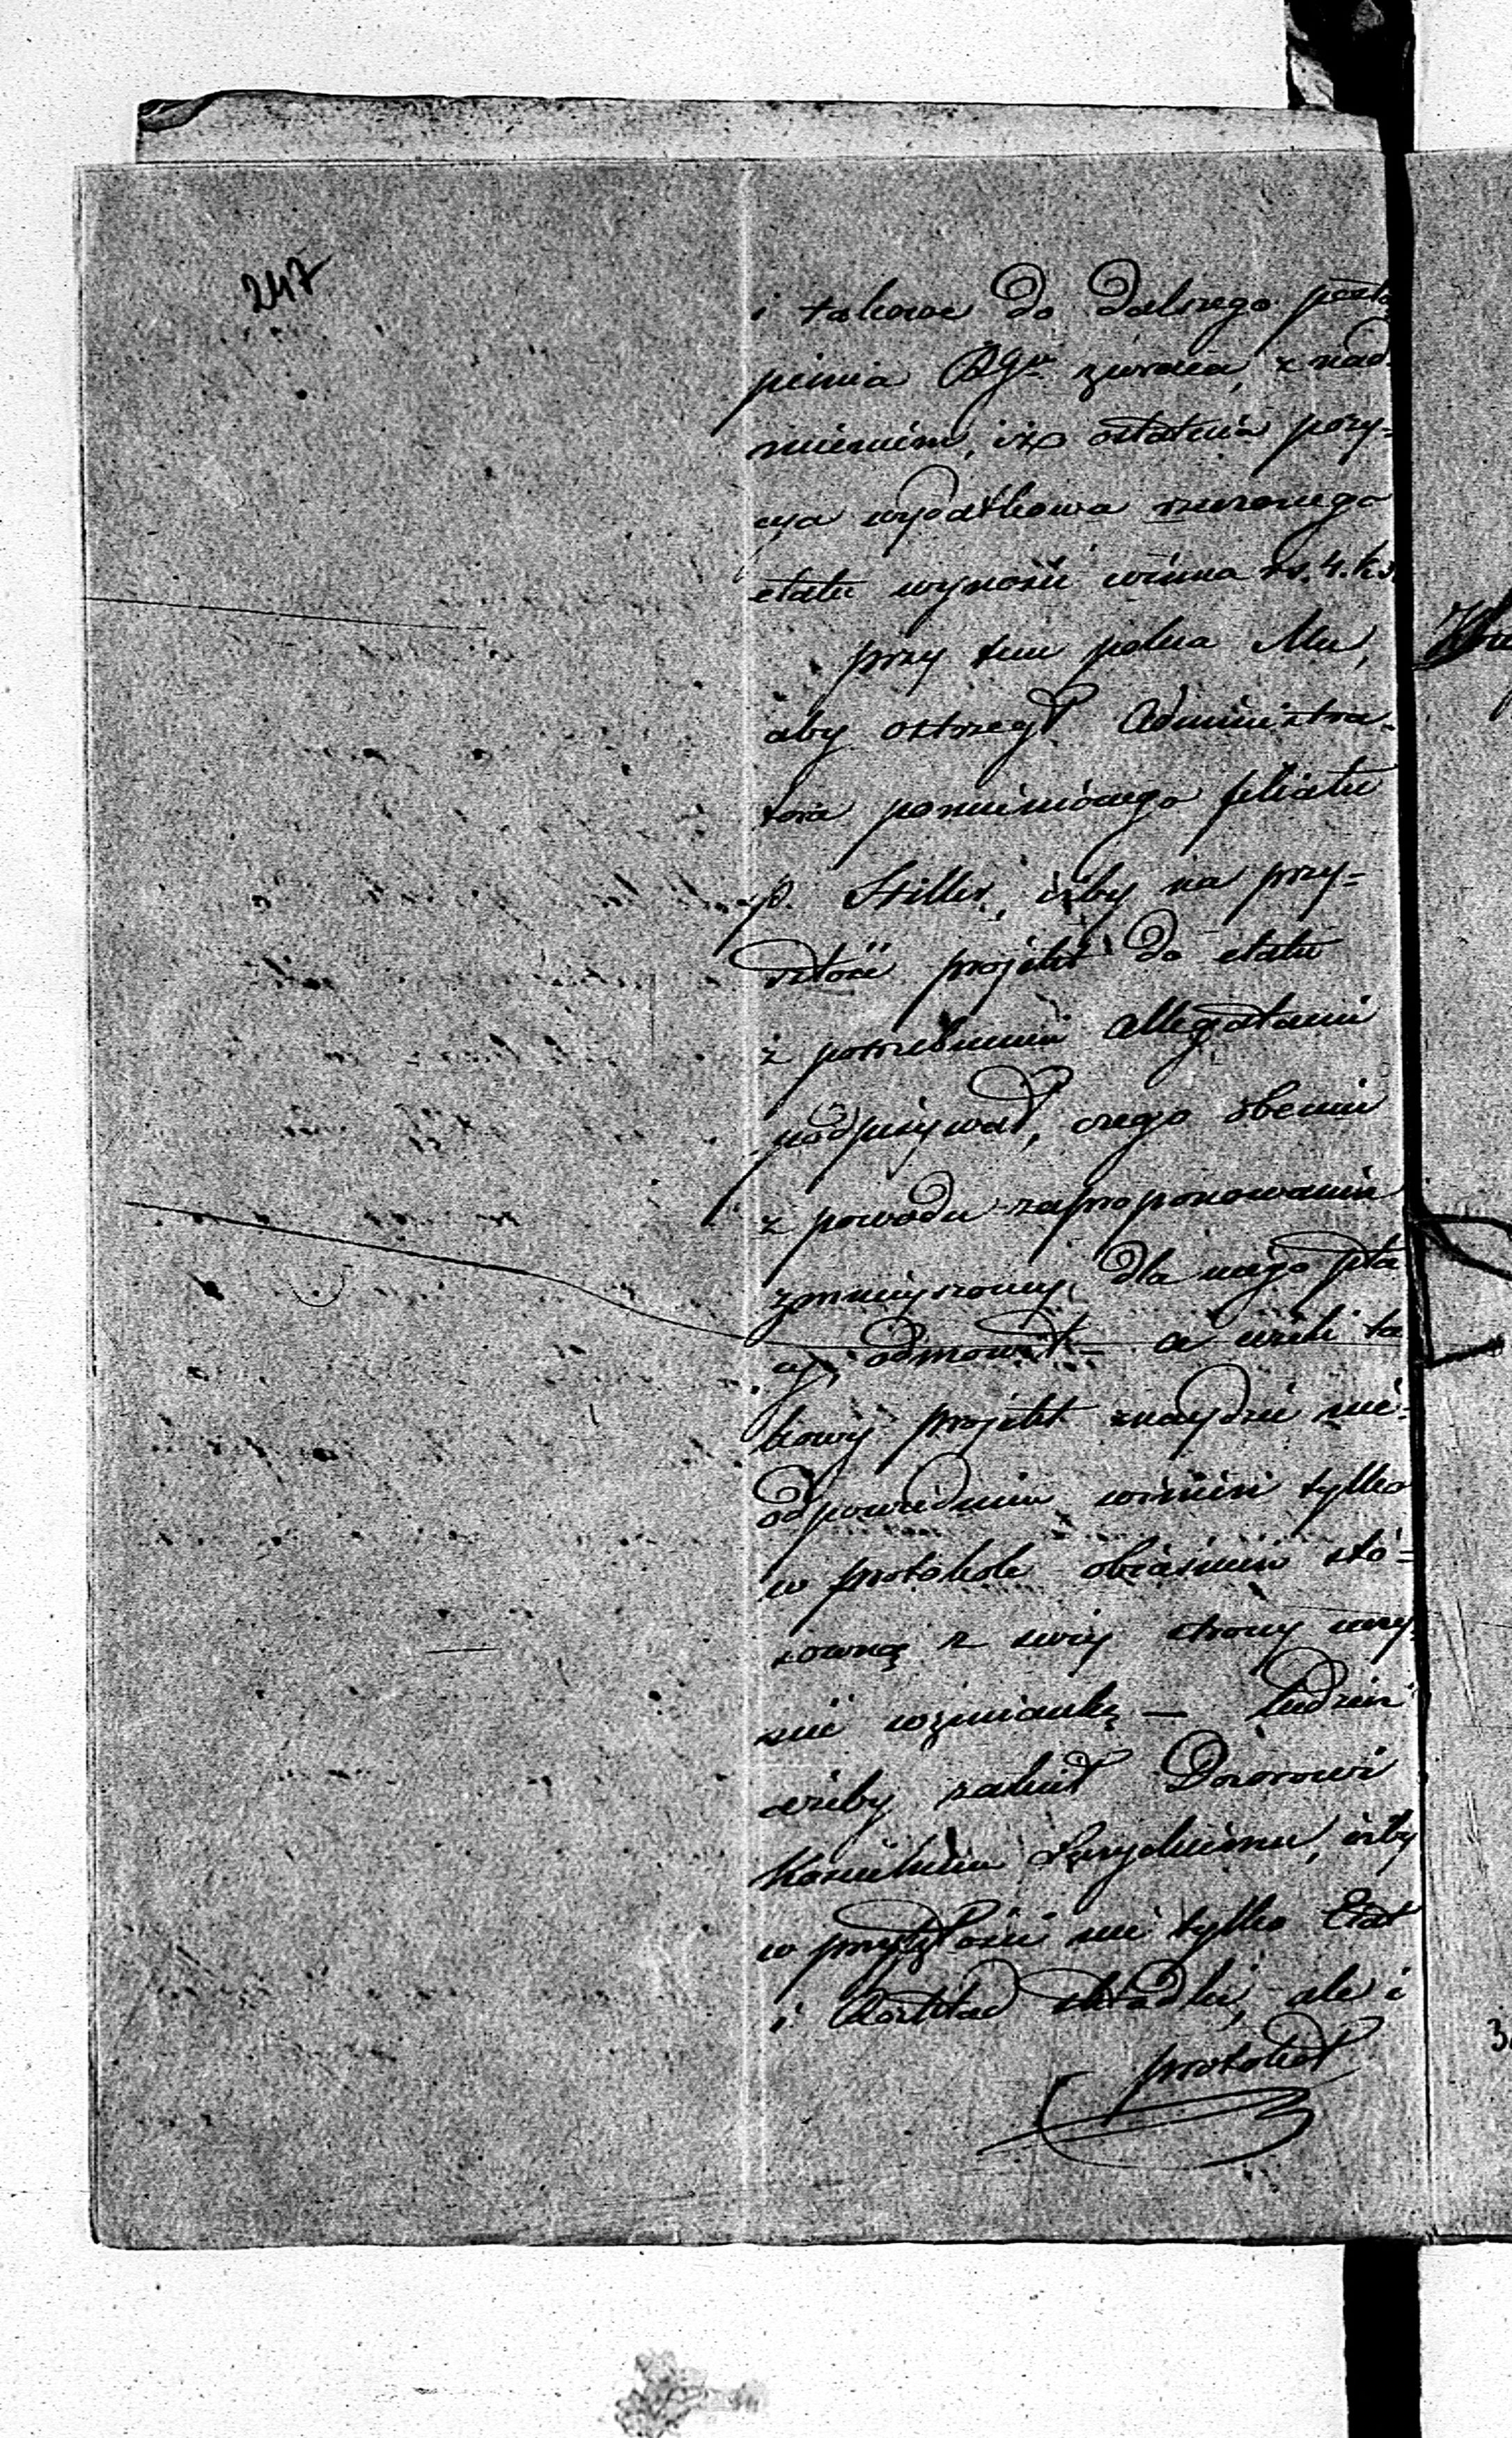 247
i takowe do dalszego postą
pienia zwraca, z nad
mieniem, iż ostatnia pozy=
cya wydatkowa rzeczonego
etatu wynosić winna rs. 4. k.
przy tem poleca Mu,
aby ostrzegł Administra-
tora pomienionego filiału
p. Stiller, iżby na przy=
szłość projekt do etatu
z potrzebnemi allegatami
podpisywał, czego obecnie
z powodu zaproponowania
zmniejszonej dla niego pła
cy, odmówił – a jeżeli ta
kowy projekt znajdzie nie=
odpowiednim winien tylko
w protokole objaśnień sto=
sowną z swej strony uczy=
nić wzmiankę — tudzież
ażeby zalecił Dozorowi
Kościelnemu, iżby
w przyszłości nie tylko Etat
i Rozkład składki, ale i
protokół